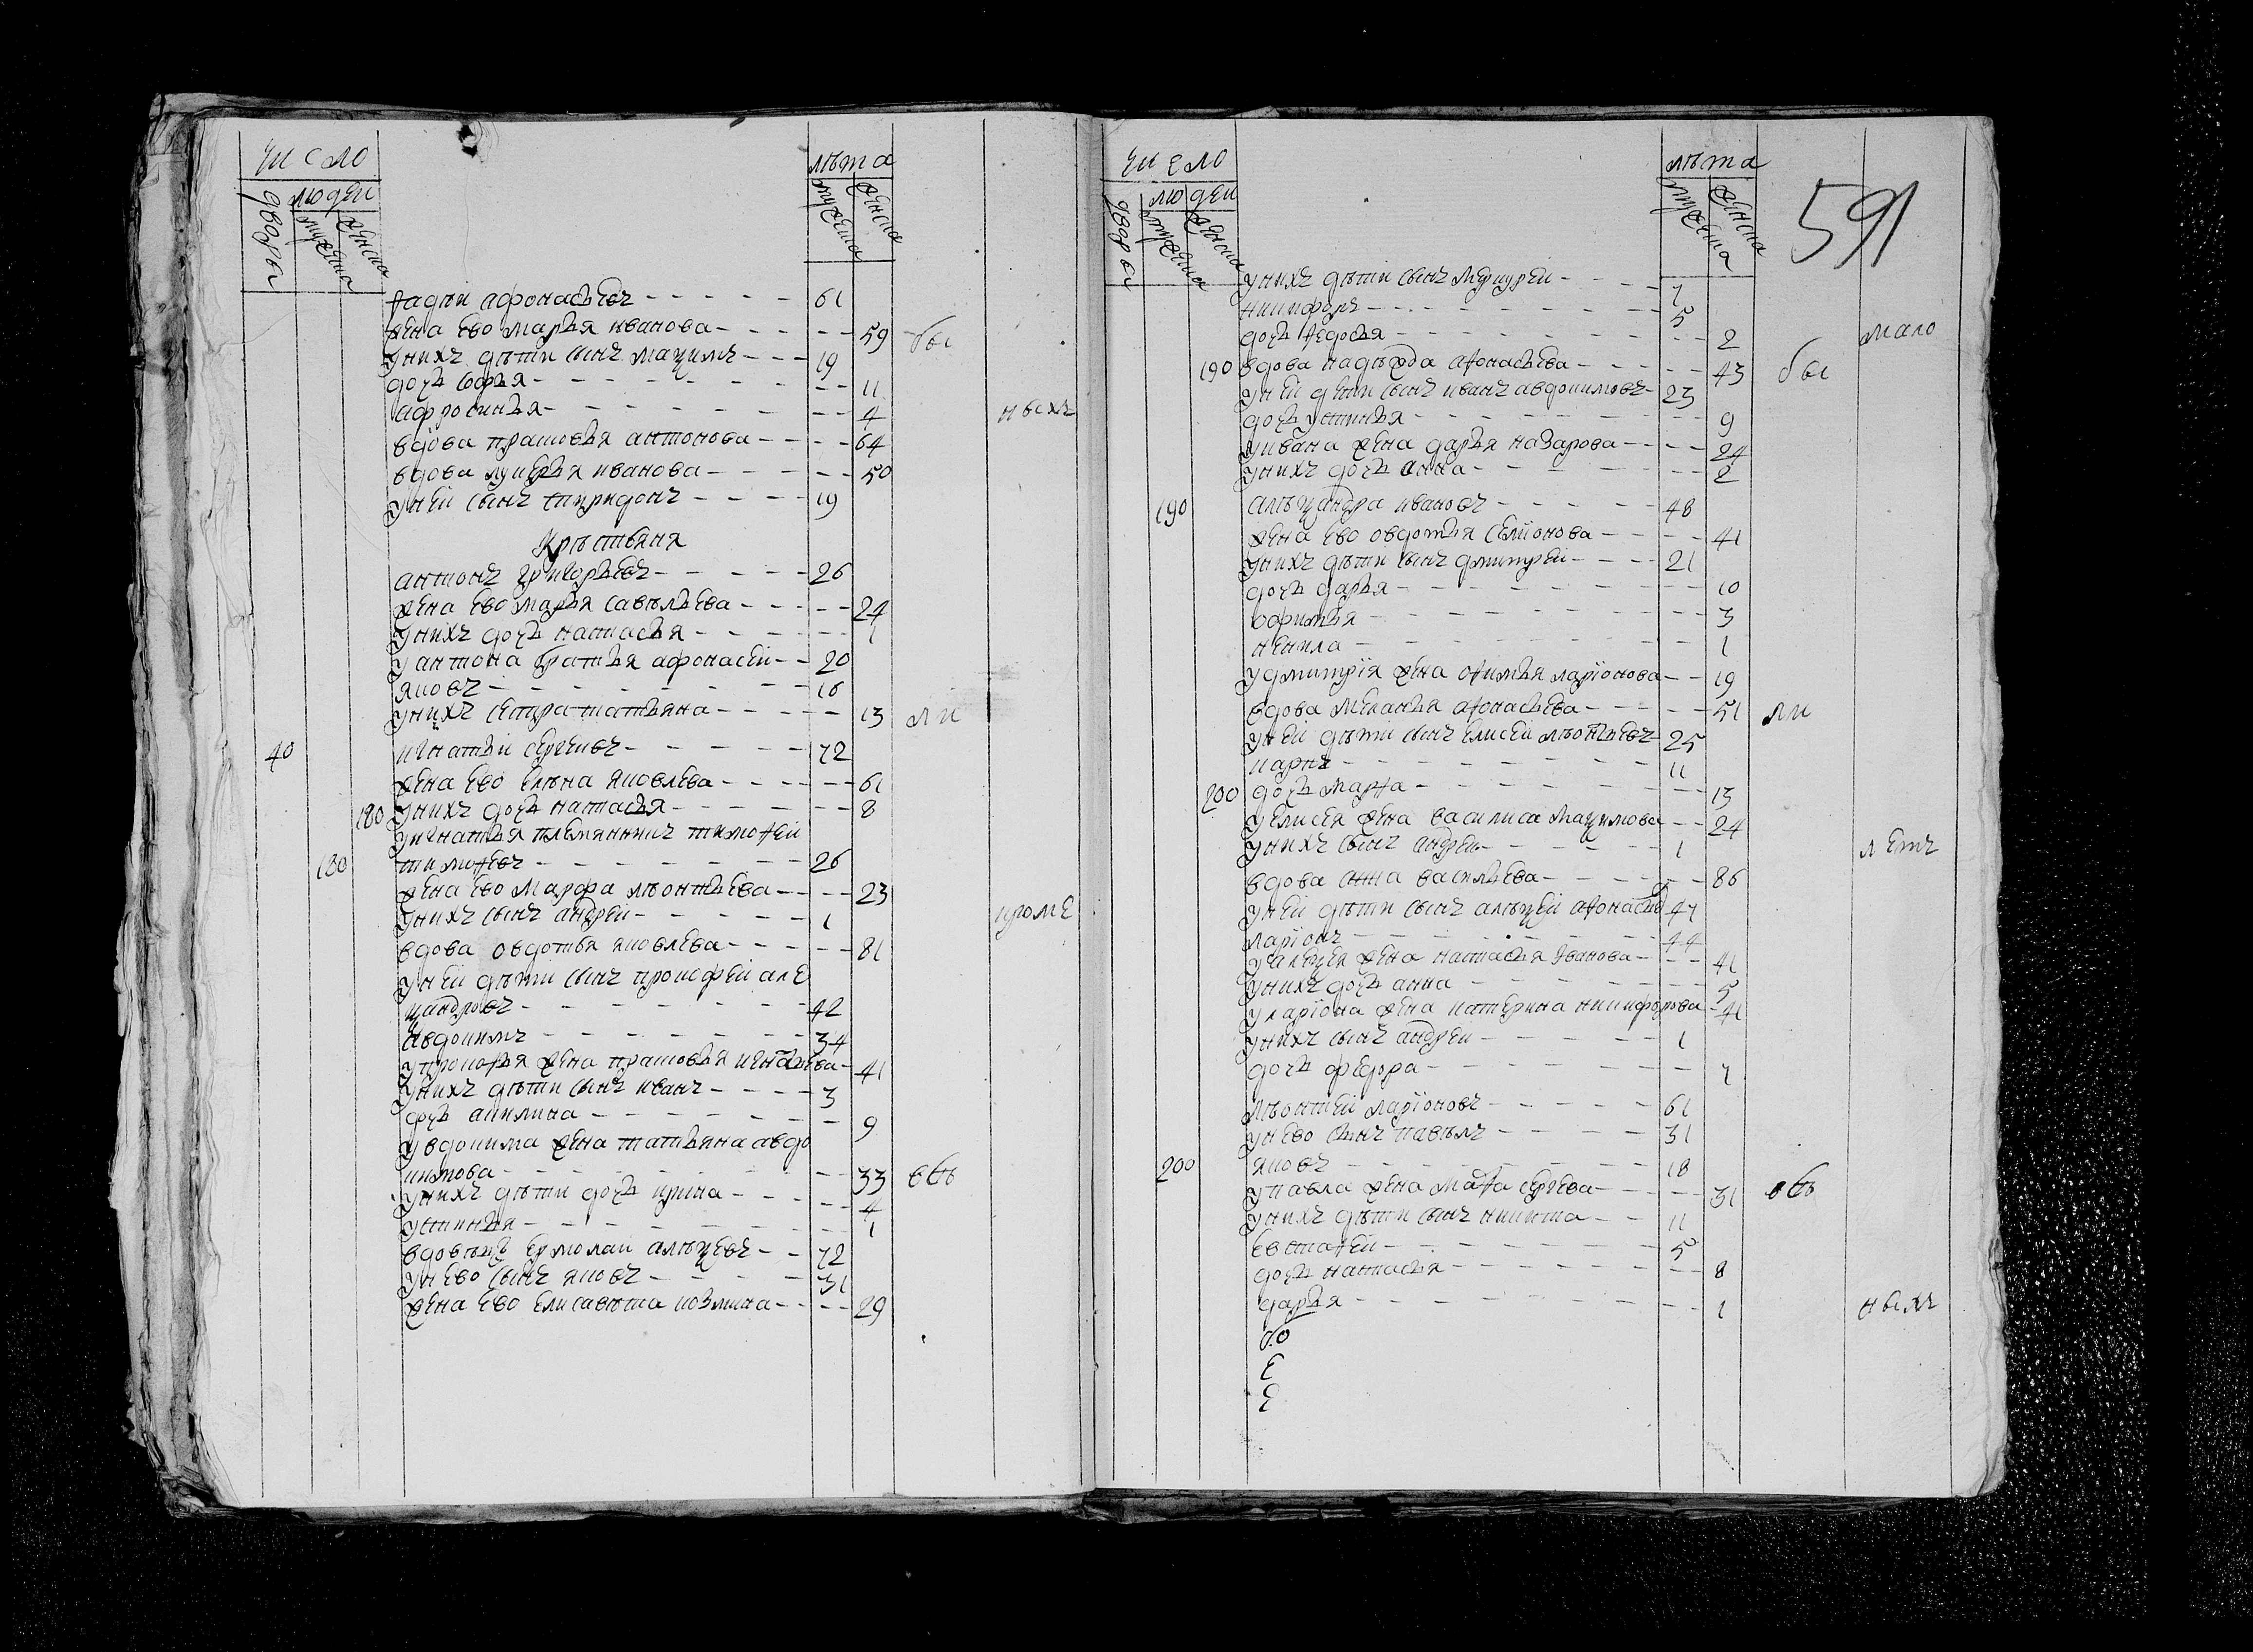 число
лѣта
двора
людеи
мужеска
женска
мужеска
женска
фадѣи афонасьевъ - - - - - 61
жена ево марья иванова - - - - - 59 бы
у нихъ дѣти сынъ мазимъ - - - 19
дочь софья - - - - - - - - 11
афросинья - - - - - - - - 4 ныхъ
вдова прасковья антонова - - - - 64
вдова лукерья иванова - - - - - 50
у неи сынъ спиридонъ - - - - 19
Крѣстьяня
антонъ григорьевъ - - - - - 26
жена ево марья савѣльева - - - - - 24
у нихъ дочь настасья - - - - - - 1
у антона братья афонасеи - - 20
яковъ - - - - - - - - 16
у нихъ сестра татьяна - - - - - 13 ли
40 игнатеи сергеивъ - - - - - 72
жена ево елѣна яковлева - - - - - 61
180 у нихъ дочь настасья - - - - - - 8
у игнатья племянникъ тимофеи
180 тимофевъ - - - - - - - 26
жена ево марфа лѣонтьева - - - - 23
у нихъ сынъ андреи - - - - - 1 кроме
вдова овдотья яковлева - - - - - 81
у неи дѣти сынъ прокофеи але
ѯандровъ - - - - - - - 42
авдокимъ - - - - - - - 34
у прокофья жена прасковья игнатьева - 41
у нихъ дѣти сынъ иванъ - - - - 3
дочь акилина - - - - - - - 9
у вдокима жена татьяна авдо
кимова - - - - - - - - 33 свѣ
у нихъ дѣти дочь ирина - - - - - 4
устинья - - - - - - - - 1
вдовѣцъ ермолаи алѣѯевъ - - 72
у нево сынъ яковъ - - - - 31
жена ево елисавѣта козмина - - - - 29
число
лѣта
двора
людеи
мужеска
женска
мужеска
женска
591
у нихъ дѣти сынъ меркуреи - - - - 7
никифоръ - - - - - - - - 5
дочь федосья - - - - - - - - 2 мало
190 вдова надѣжда афонасьева - - - - - 43 бы
у неи дѣти сынъ иванъ авдокимовъ - 23
дочь устинья - - - - - - - - 9
у ивана жена дарья назарова - - - - 24
у нихъ дочь анна - - - - - - 2
190 алѣѯандра ивановъ - - - - - 48
жена ево овдотья семионова - - - - 41
у нихъ дѣти сынъ дмитреи - - - - 21
дочь дарья - - - - - - - - 10
офимья - - - - - - - - 3
ненила - - - - - - - - 1
у дмитрия жена офимья ларионова - - 19
вдова меланья афонасьева - - - - - 51 ли
у неи дѣти сынъ елисеи лѣонтьевъ 25
карпъ - - - - - - - - 11
200 дочь марфа - - - - - - - - 13
у елисея жена василиса маѯимова - - 24
у нихъ сынъ андреи - - - - - 1 летъ
вдова анна васильева - - - - - - 86
у неи дѣти сынъ алѣѯеи афонасьев 47
ларионъ - - - - - - - - 44
у алѣѯея жена настасья иванова - - - 41
у нихъ дочь анна - - - - - - 5
у лариона жена катерина никифорова - 41
у нихъ сынъ андреи - - - - - 1
дочь федора - - - - - - - 7
лѣонтеи ларионовъ - - - - - 61
у нево сынъ павѣлъ - - - - - 31
200 яковъ - - - - - - - - 18
у павла жена марфа сергеева - - - - 31 свѣ
у нихъ дѣти сынъ никита - - 11
евстафеи - - - - - - - 5
дочь настасья - - - - - - - - 8
дарья - - - - - - - - 1 ныхъ